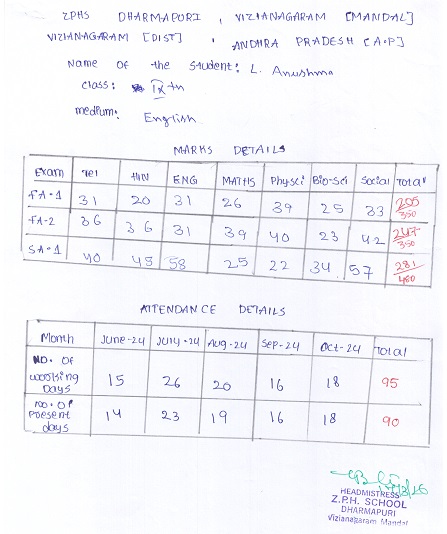 ZPHS DHARMAPURI, VIZIANAGARAM [MANDAL]
VIZIANAGARAM [DIST], ANDHRA PRADESH [A.P]
Name of the student: L. Anushma
class: IX th
medium: English
MARKS DETAILS
Exam Tel HIN ENG MATHS Physci Bio-Sci Social Total
FA-1 31 20 31 26 39 25 33 205/350
FA-2 36 36 31 39 40 23 42 247/350
SA-1 40 45 58 25 22 34 57 281/480
ATTENDANCE DETAILS
Month June-24 July-24 Aug-24 Sep-24 Oct-24 Total
NO. OF working Days 15 26 20 16 18 95
no. of Present days 14 23 19 16 18 90
HEADMISTRESS
Z.P.H. SCHOOL
DHARMAPURI
Vizianagaram Mandal